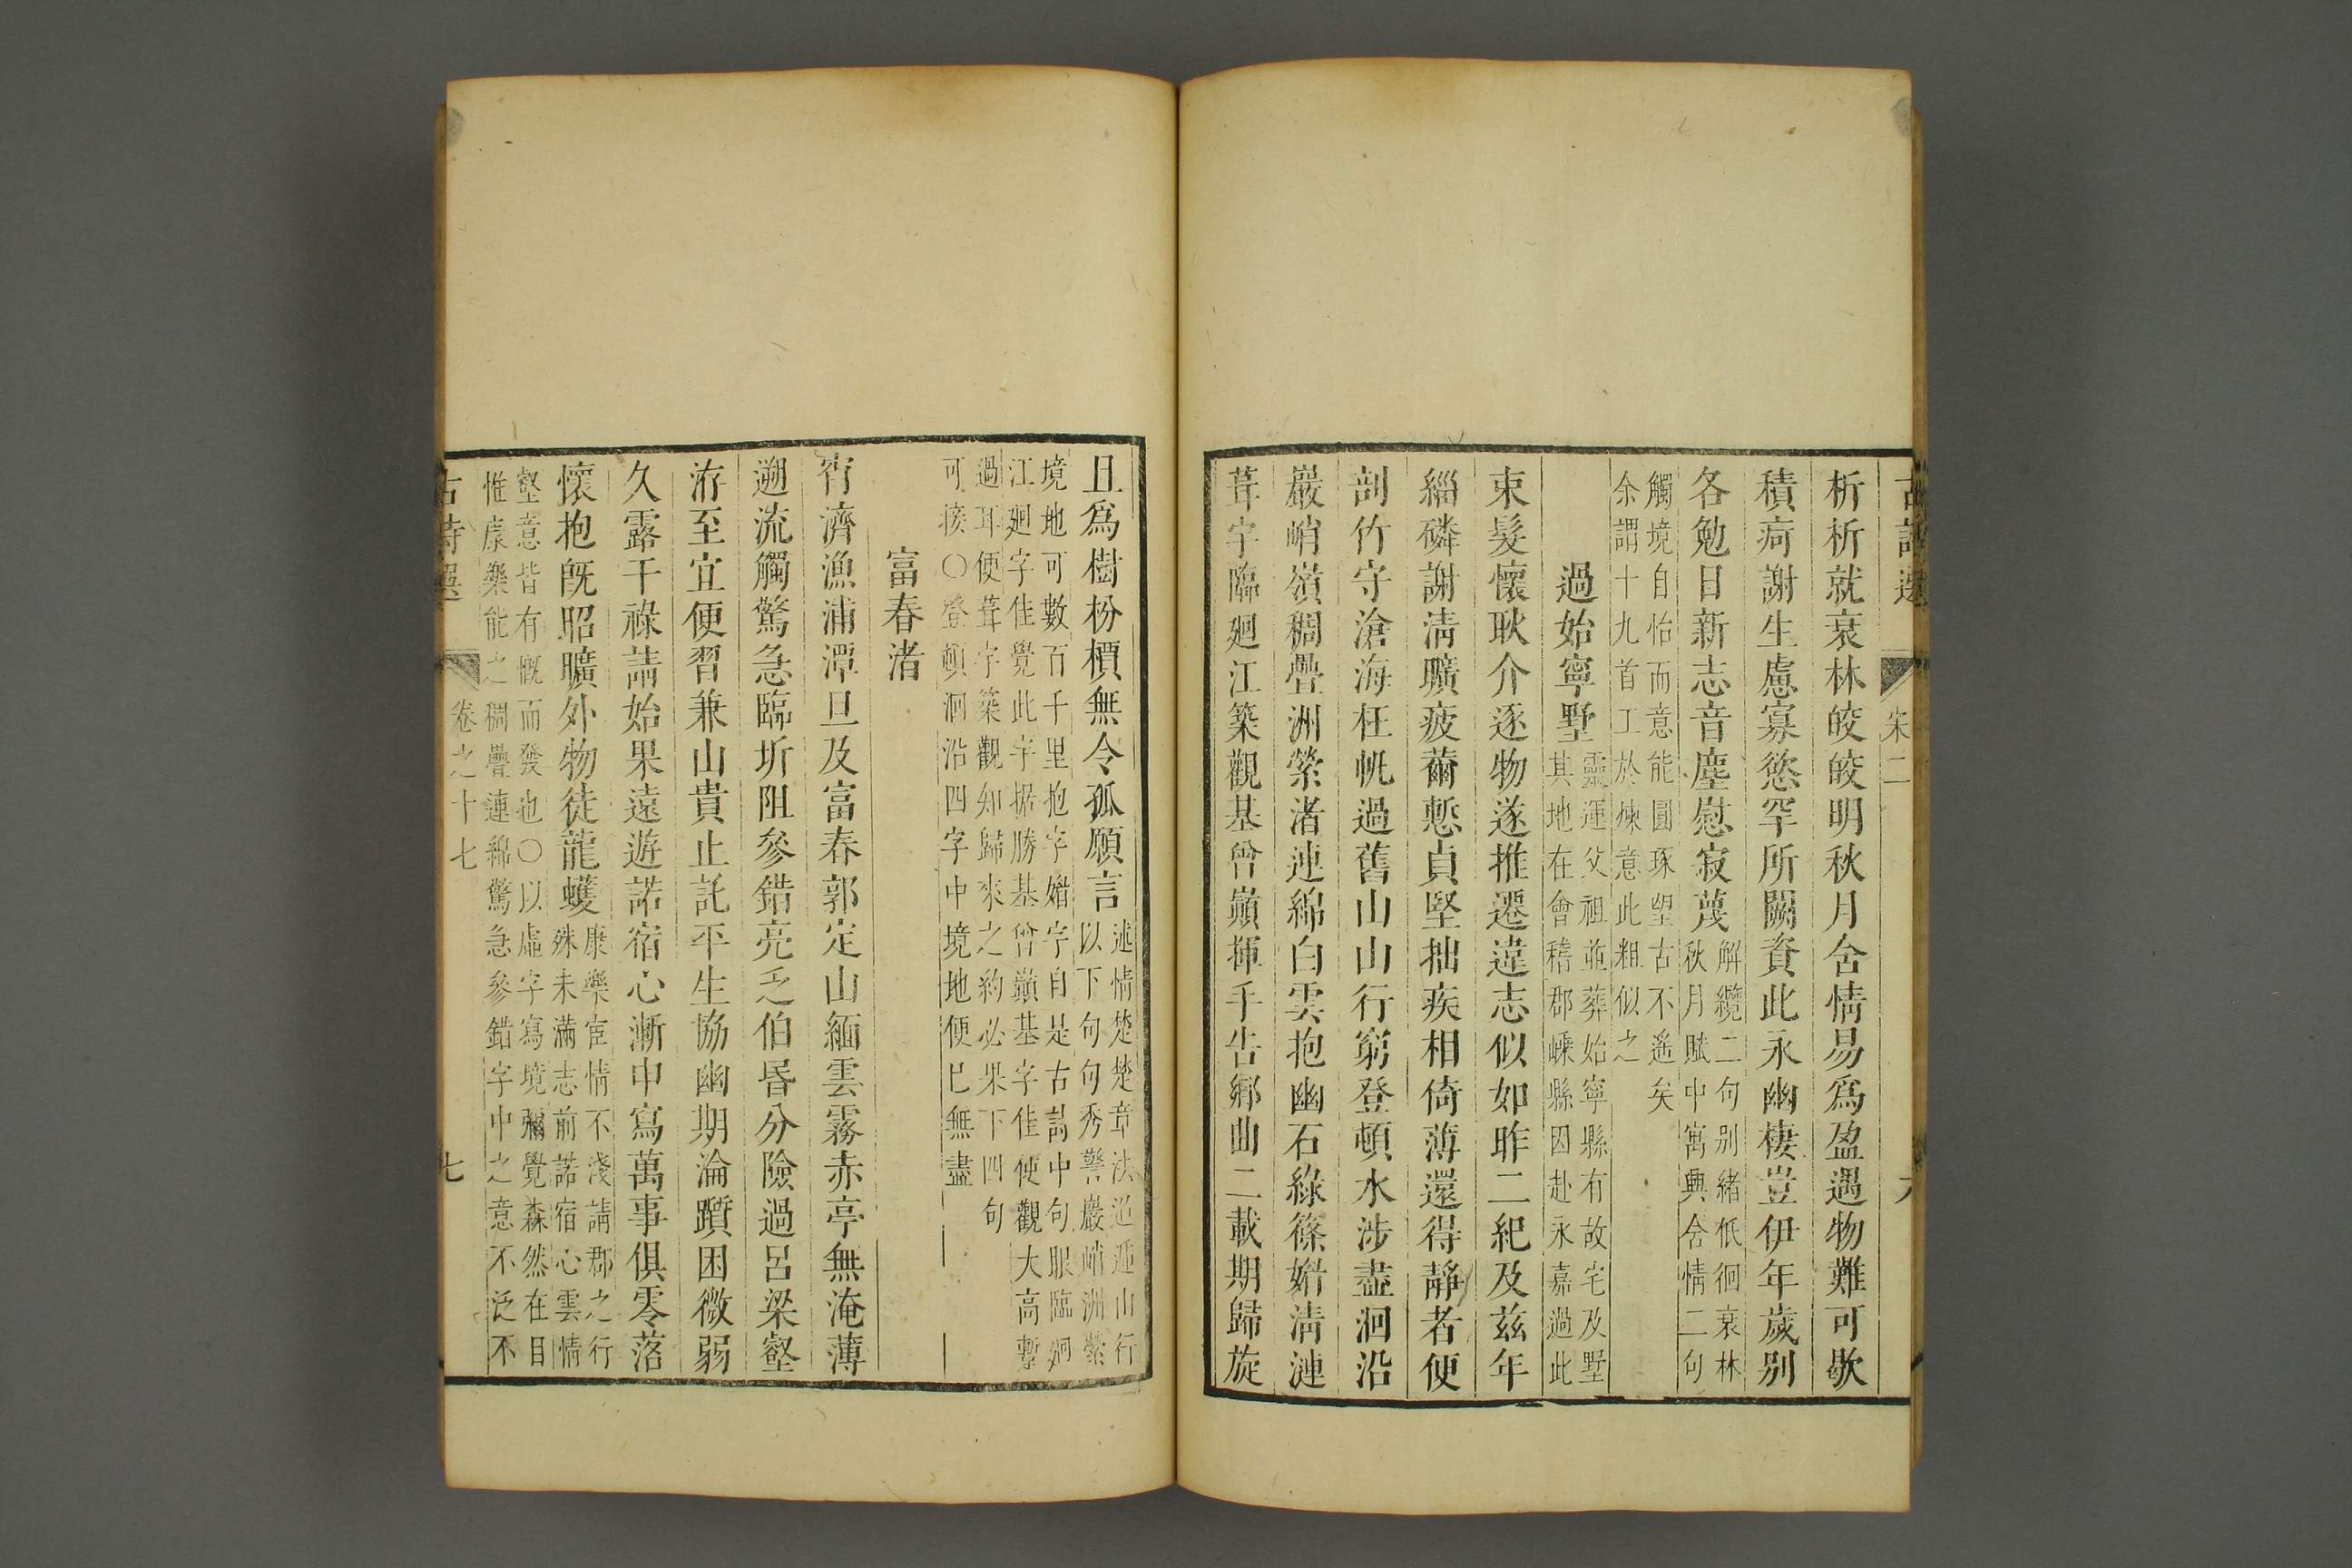 古詩選
宋二
析析就衰林皎皎明秋月含情易爲盈遇物難可歇
積疴謝生慮寡慾罕所闕資此永幽棲豈伊年歲别
各勉日新志音塵慰寂蔑
解纜二句别緒低徊衰林
秋月賦中寓興含情二句
觸境自怡而意能圓琢望古不遙矣
余謂十九首工於煉意此粗似之
過始寧墅
靈運父祖並葬始寧縣有故宅及墅
其地在會稽郡嵊縣因赴永嘉過此
束髮懷耿介逐物遂推遷違志似如昨二紀及兹年
緇磷謝清曠疲薾慙貞堅拙疾相倚薄還得靜者便
剖竹守滄海枉帆過舊山山行窮登頓水涉盡洄沿
巖峭嶺稠疊洲縈渚連綿白雲抱幽石綠篠媚清漣
葺宇臨廻江築觀基曾巔揮手告鄉曲二載期歸旋
且爲樹枌檟無令孤願言
述情楚楚章法迤逦山行
以下句句秀警巖峭洲縈
境地可數百千里抱字媚字自是古詩中句眼臨廻
江廻字佳覺此字据勝基曾巔基字佳使觀大高暫
過耳便葺宇築觀知歸來之約必果下四句
可接〇登頓洄沿四字中境地便已無盡
富春渚
宵濟漁浦潭旦及富春郭定山緬雲霧赤亭無淹薄
遡流觸驚急臨圻阻參錯亮乏伯昏分險過呂梁壑
洊至宜便習兼山貴止託平生協幽期淪躓困微弱
久露干祿請始果遠遊諾宿心漸申寫萬事俱零落
懷抱旣昭曠外物徒龍蠖
康樂宦情不淺請郡之行
殊未滿志前諾宿心雲情
壑意皆有慨而發也〇以虛字寫境彌覺森然在目
惟康樂能之稠疊連綿驚急參錯字中之意不泛不
古詩選
卷之十七
七